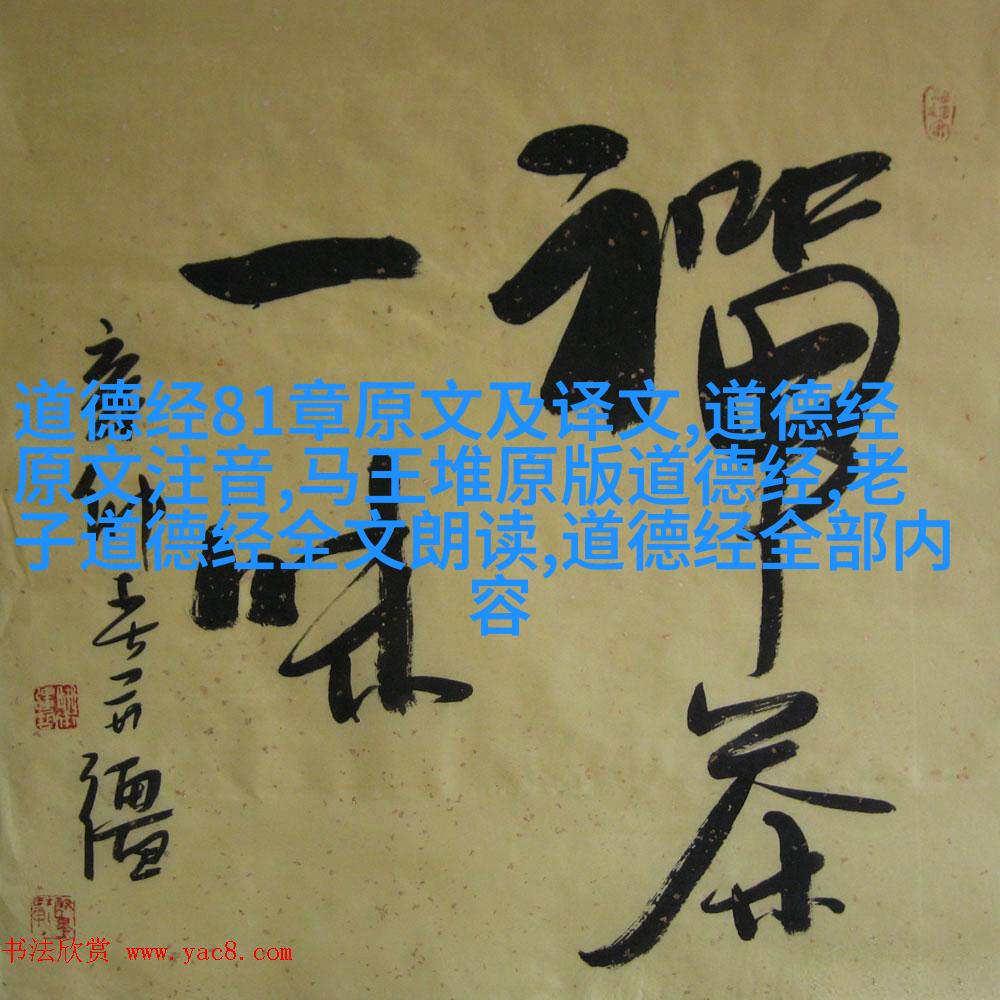 禪茶
一味
道德经81章原文及译文,道德经
原文注音,马王堆原版道德经,老
子道德经全文朗读,道德经全部内
容
书法欣赏 www.yac8.com